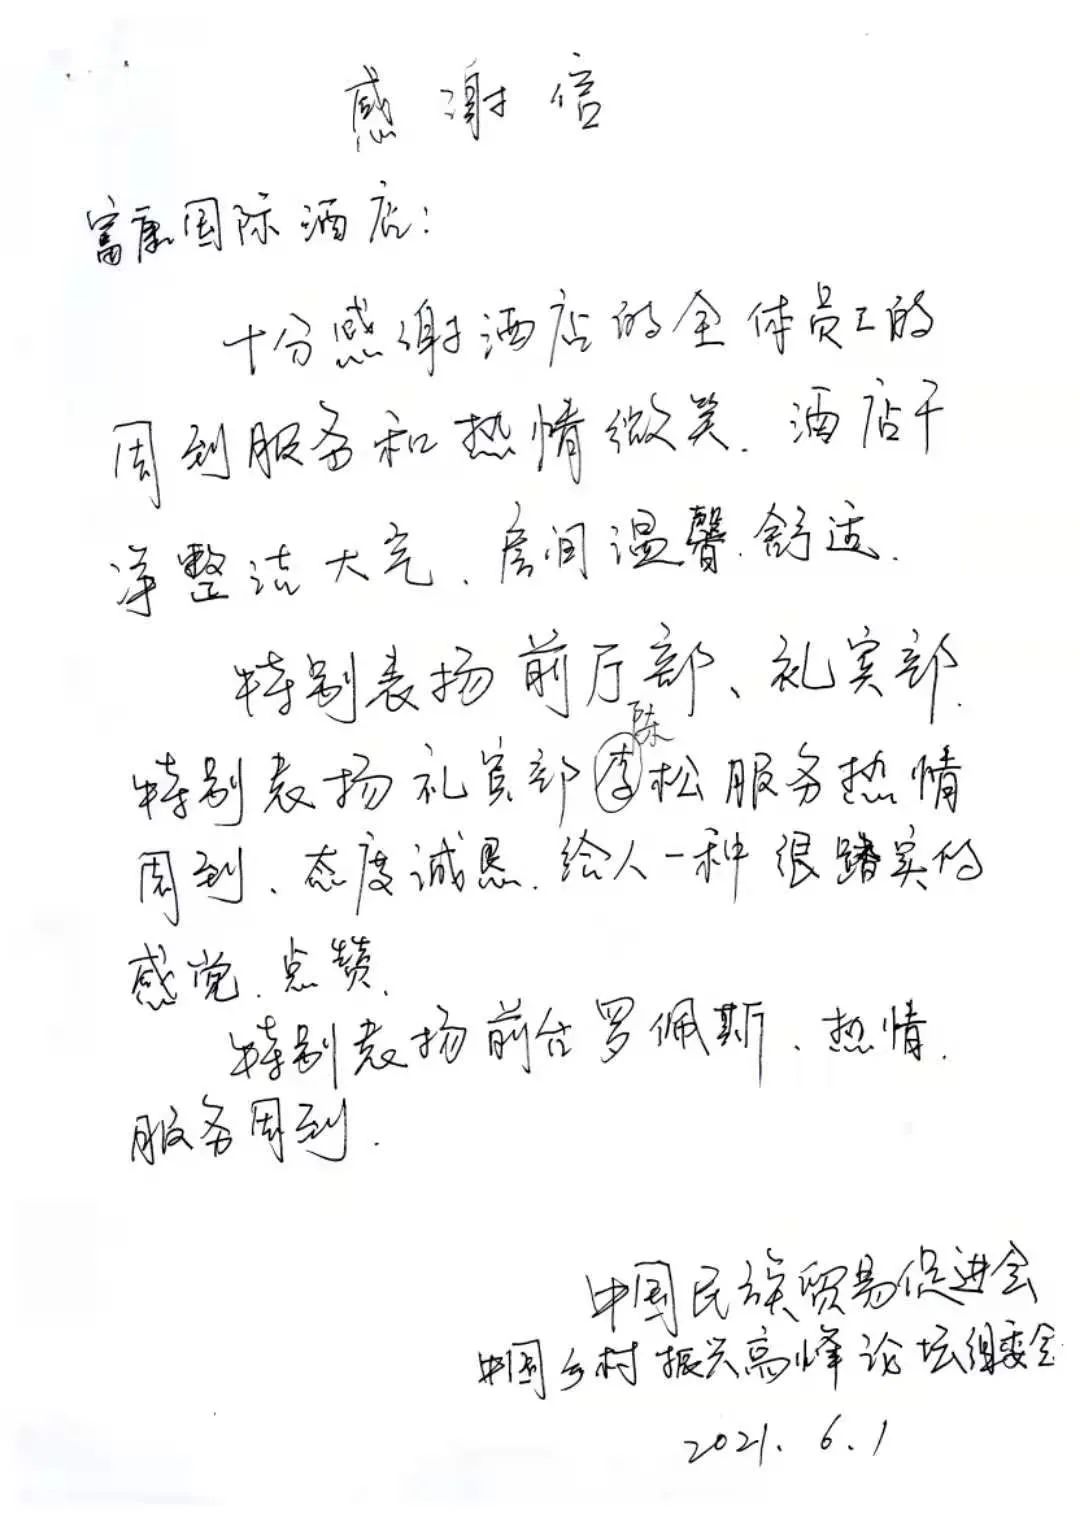 感谢信
富康国际酒店：
十分感谢酒店的全体员工的
周到服务和热情微笑.酒店干
净整洁大气、房间温馨.舒适.
特别表扬前厅部、礼宾部.
陈
特别表扬礼宾部李松服务热情
周到、态度诚恳.给人一种很踏实的
感觉.点赞.
特别表扬前台罗佩斯、热情.
服务周到.
中国民族贸易促进会
中国乡村振兴高峰论坛组委会
2021.6.1